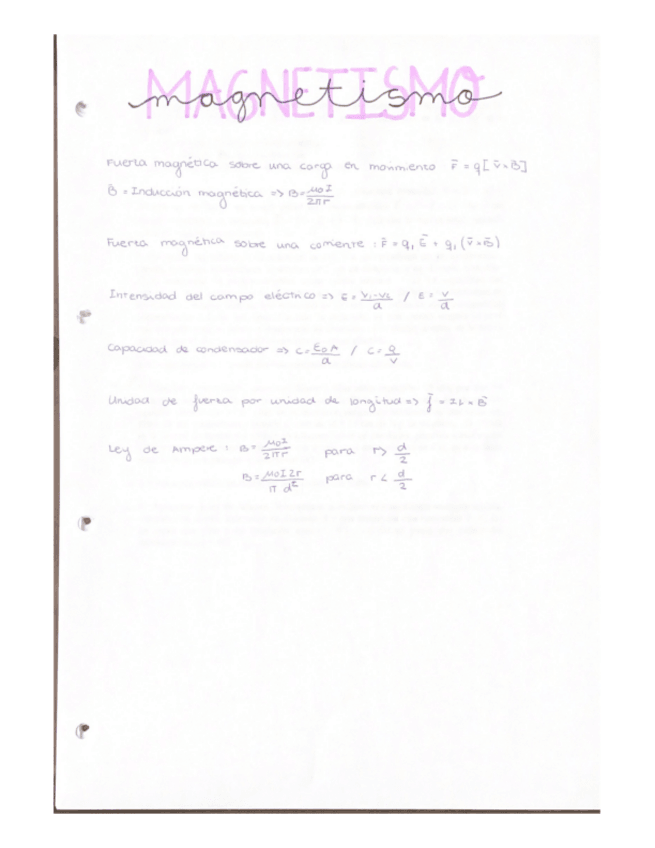 MAGNETISMO
magnetismo
Fuerza magnética sobre una carga en movimiento F̄ = q[v̄×B̄]
B̄ = Inducción magnética => B = μ0I / 2πr
Fuerza magnética sobre una corriente : F̄ = q, Ē + q, (v̄×B̄)
Intensidad del campo eléctrico => E = V1-V2 / d / E = V / d
Capacidad de condensador => C = ε0A / d / C = Q / V
Unidad de fuerza por unidad de longitud => f̄ = ×B̄
Ley de Ampere : B = μ0I / 2πr para r > d/2
B = μ0I2r / π d² para r < d/2